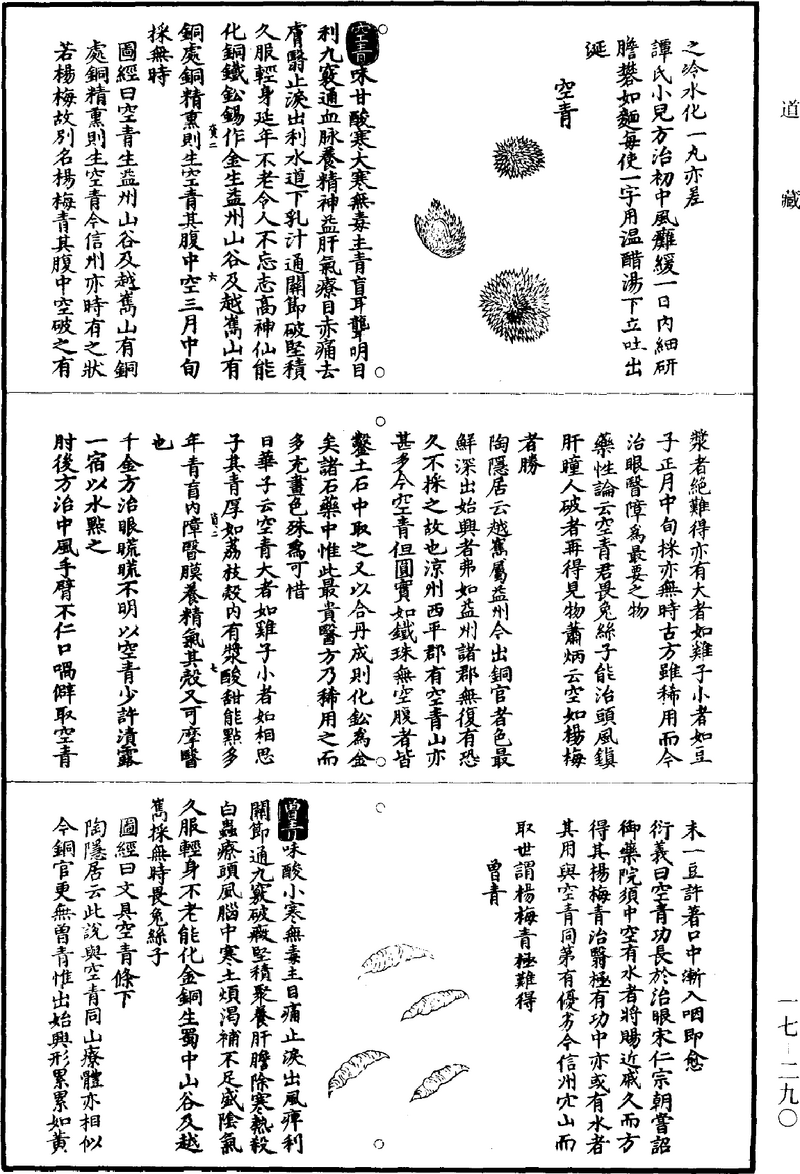 道藏
之冷水化一丸亦差
譚氏小兒方治初中風癱緩一日內細研
膽礬如麵每使一字用温醋湯下立吐出
涎
空青
空青味甘酸寒大寒無毒主青盲耳聾明目
利九竅通血脉養精神益肝氣療目赤痛去
膚翳止淚出利水道下乳汁通關節破堅積
久服輕身延年不老令人不忘志高神仙能
化銅鐵鈆錫作金生益州山谷及越嶲山有
銅處銅精熏則生空青其腹中空三月中旬
採無時
圖經曰空青生益州山谷及越嶲山有銅
處銅精熏則生空青今信州亦時有之狀
若楊梅故別名楊梅青其腹中空破之有
漿者絕難得亦有大者如雞子小者如豆
子正月中旬採亦無時古方雖稀用而今
治眼翳障爲最要之物
藥性論云空青君畏兔絲子能治頭風鎮
肝瞳人破者再得見物蕭炳云空如楊梅
者勝
陶隱居云越嶲屬益州今出銅官者色最
鮮深出始興者弗如益州諸郡無復有恐
久不採之故也涼州西平郡有空青山亦
甚多今空青但圓實如鐵珠無空腹者皆
鑿土石中取之又以合丹成則化鈆爲金
矣諸石藥中惟此最貴醫方乃稀用之而
多充畫色殊爲可惜
日華子云空青大者如雞子小者如相思
子其青厚如荔枝殼內有漿酸甜能點多
年青盲內障翳膜養精氣其殼又可摩翳
也
千金方治眼䀮䀮不明以空青少許漬露
一宿以水點之
肘後方治中風手臂不仁口喎僻取空青
末一豆許著口中漸入咽即愈
衍義曰空青功長於治眼宋仁宗朝嘗詔
御藥院須中空有水者將賜近戚久而方
得其楊梅青治翳極有功中亦或有水者
其用與空青同第有優劣今信州穴山而
取世謂楊梅青極難得
曾青
曾青味酸小寒無毒主目痛止淚出風痺利
關節通九竅破癥堅積聚養肝膽除寒熱殺
白蟲療頭風腦中寒止煩渴補不足盛陰氣
久服輕身不老能化金銅生蜀中山谷及越
嶲採無時畏兔絲子
圖經曰文具空青條下
陶隱居云此說與空青同山療體亦相似
今銅官更無曾青惟出始興形累累如黃
一七-二九〇